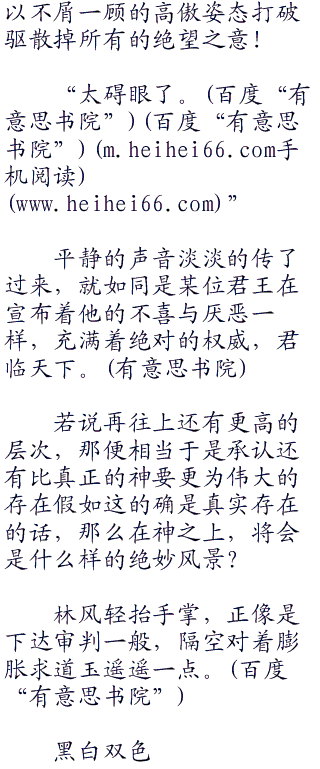 以不屑一顾的高傲姿态打破
驱散掉所有的绝望之意！
“太碍眼了。(百度“有
意思书院”)(百度“有意思
书院”)(m.heihei66.com手
机阅读)
(www.heihei66.com)”
平静的声音淡淡的传了
过来，就如同是某位君王在
宣布着他的不喜与厌恶一
样，充满着绝对的权威，君
临天下。(有意思书院)
若说再往上还有更高的
层次，那便相当于是承认还
有比真正的神要更为伟大的
存在假如这的确是真实存在
的话，那么在神之上，将会
是什么样的绝妙风景？
林风轻抬手掌，正像是
下达审判一般，隔空对着膨
胀求道玉遥遥一点。(百度
“有意思书院”)
黑白双色